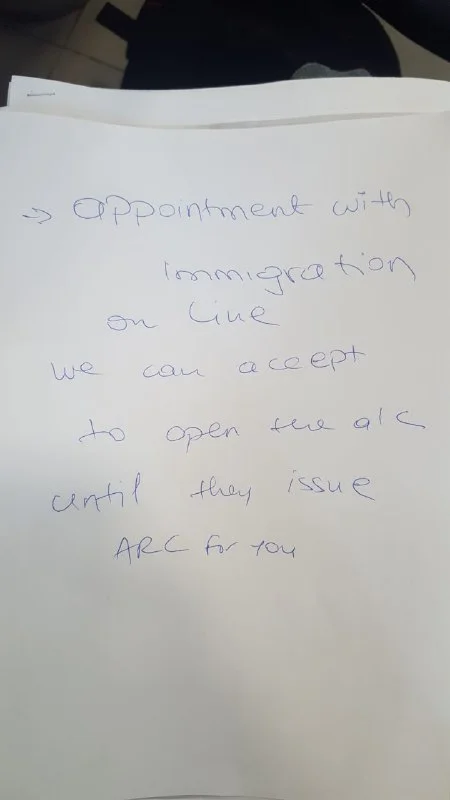 => appointment with
immigration
on line
we can accept
to open the a/c
until they issue
ARC for you